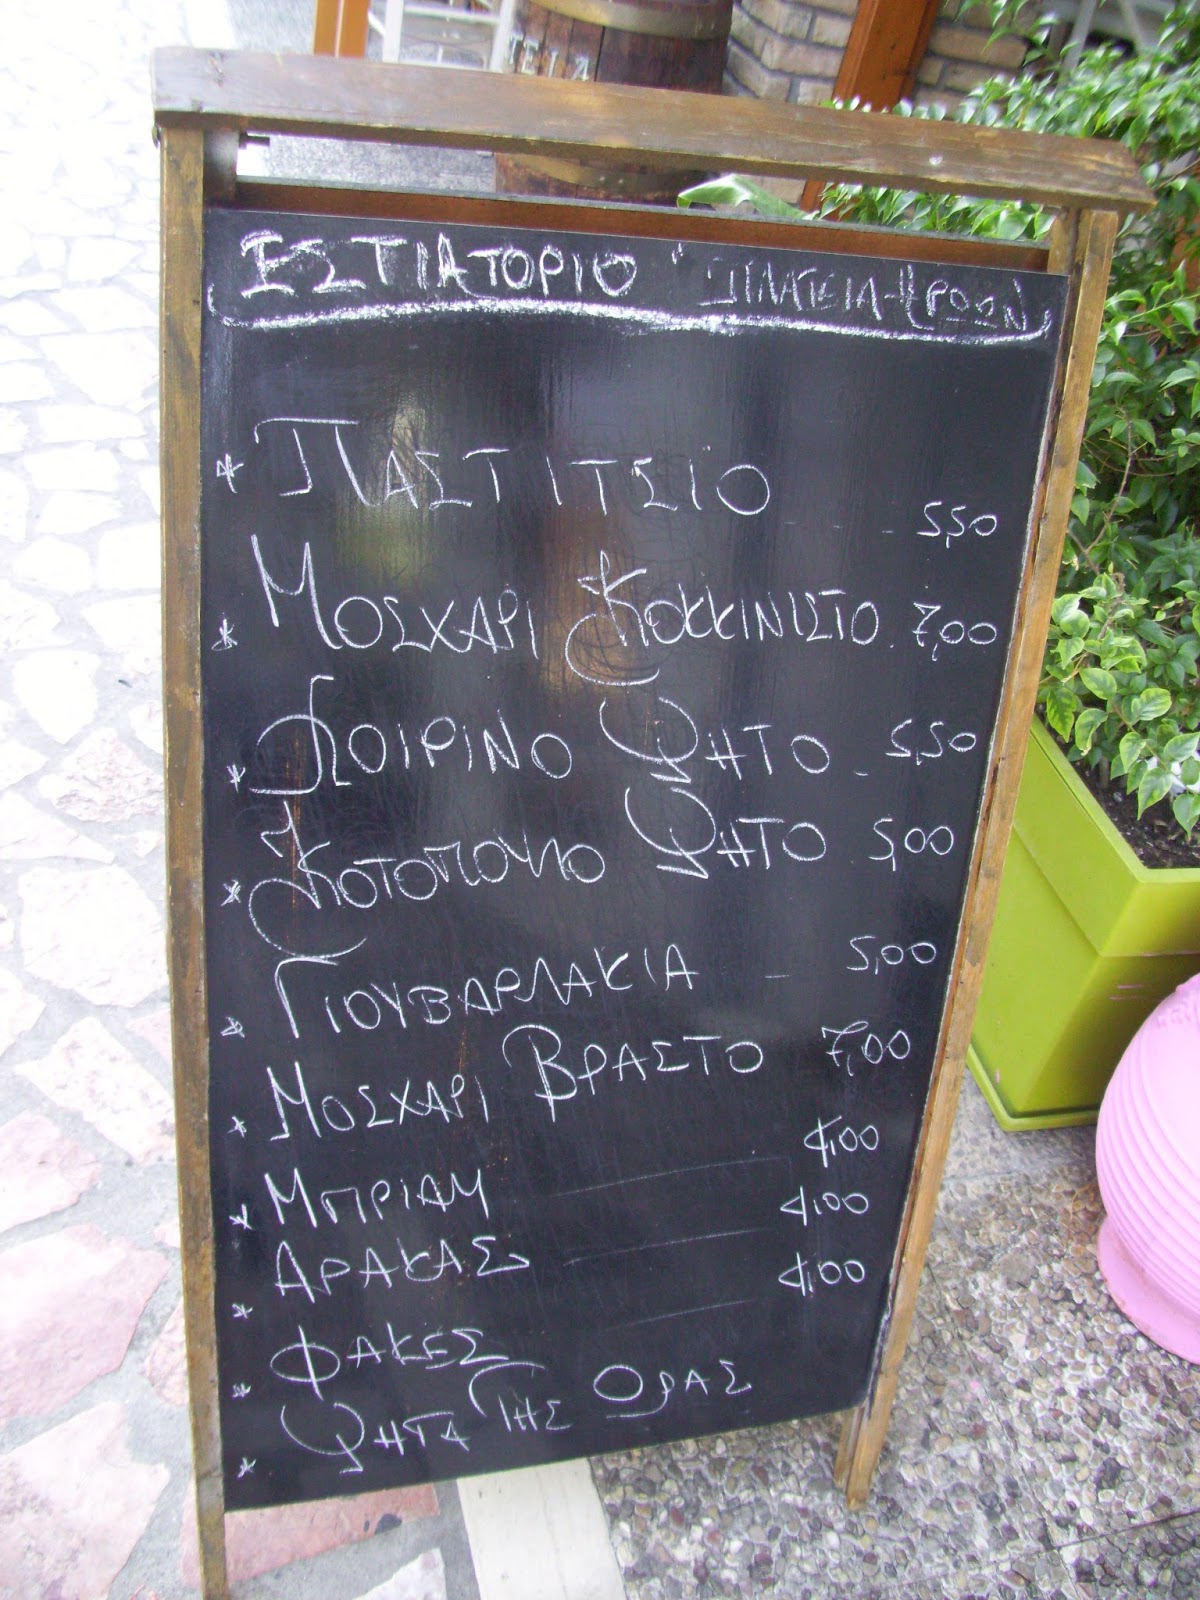 ΤΕΙΑ
ΕΣΤΙΑΤΟΡΙΟ "ΠΛΑΤΕΙΑ ΗΡΩΩΝ
* ΠΑΣΤΙΤΣΙΟ - - - 5,50
* ΜΟΣΧΑΡΙ ΚΟΚΚΙΝΙΣΤΟ . 7,00
* ΧΟΙΡΙΝΟ ΨΗΤΟ - 5,50
* ΚΟΤΟΠΟΥΛΟ ΨΗΤΟ . 5,00
* ΓΙΟΥΒΑΡΛΑΚΙΑ - 5,00
* ΜΟΣΧΑΡΙ ΒΡΑΣΤΟ 7,00
* ΜΠΡΙΑΜ 4,00
* ΑΡΑΚΑΣ 4,00
* ΦΑΚΕΣ 4,00
* ΨΗΤΑ ΤΗΣ ΩΡΑΣ